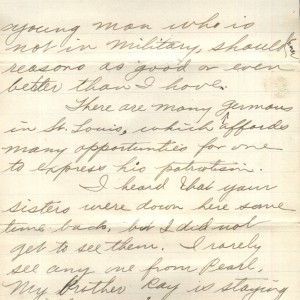 young man who is
not in military, should have
reasons as good or even
better than I have.
There are many Germans
in St. Louis, which affordes
many opportunities for one
to express his patriotism.
I heard that your
sisters were down here some
time back, but I did not
get to see them. I rarely
see any one from Pearl.
My brither Ray is staying